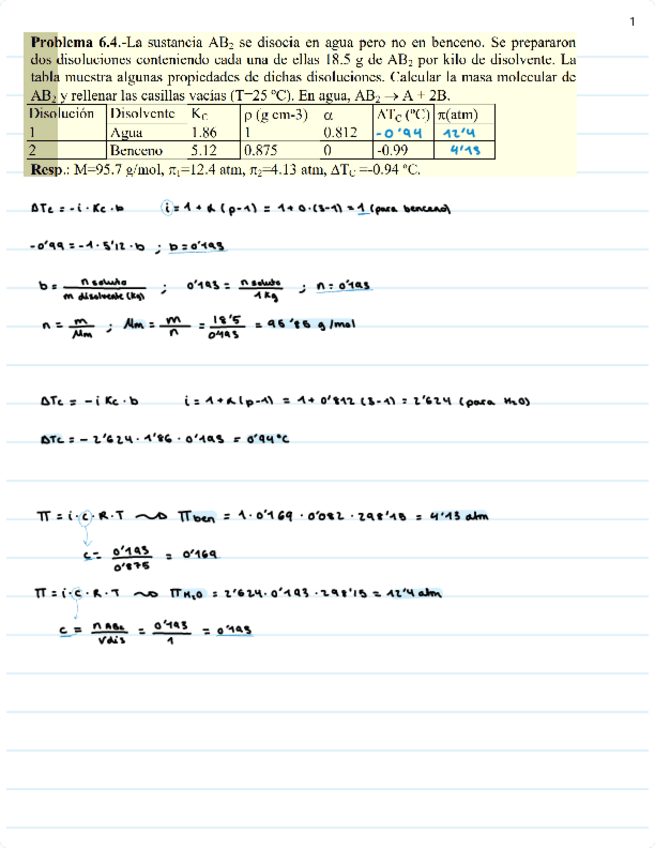 1
Problema 6.4.-La sustancia AB₂ se disocia en agua pero no en benceno. Se prepararon
dos disoluciones conteniendo cada una de ellas 18.5 g de AB₂ por kilo de disolvente. La
tabla muestra algunas propiedades de dichas disoluciones. Calcular la masa molecular de
AB₂ y rellenar las casillas vacías (T=25 ºC). En agua, AB₂ → A + 2B.
Disolución Disolvente K_C ρ (g cm-3) α ΔT_C (ºC) π(atm)
1 Agua 1.86 1 0.812 -0'94 12'4
2 Benceno 5.12 0.875 0 -0.99 4'13
Resp.: M=95.7 g/mol, π₁=12.4 atm, π₂=4.13 atm, ΔT_C =-0.94 ºC.
ΔTc = -i · Kc · b i = 1 + α (p-1) = 1 + 0 · (3-1) = 1 (para benceno)
-0'99 = -1 · 5'12 · b ; b = 0'193
b = n soluto / m disolvente (Kg) ; 0'193 = n soluto / 1 Kg ; n = 0'193
n = m / Mm ; Mm = m / n = 18'5 / 0'193 = 95'85 g/mol
ΔTc = -i Kc · b i = 1 + α (p-1) = 1 + 0'812 (3-1) = 2'624 (para H₂O)
ΔTc = - 2'624 · 1'86 · 0'193 = 0'94 °C
π = i · c · R · T ⟿ π ben = 1 · 0'169 · 0'082 · 298'15 = 4'13 atm
c = 0'193 / 0'875 = 0'169
π = i · c · R · T ⟿ π H₂O = 2'624 · 0'193 · 298'15 = 12'4 atm
c = n AB₂ / V dis = 0'193 / 1 = 0'193